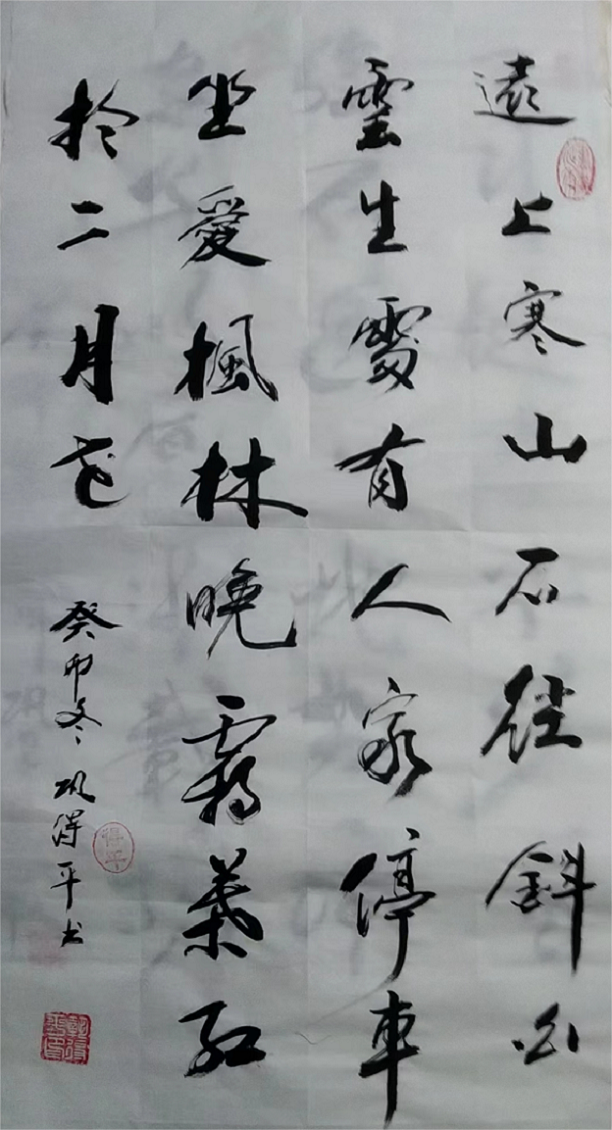 遠上寒山石徑斜白
雲生處有人家停車
坐愛楓林晚霜葉紅
於二月花
癸卯冬巩得平书
得平